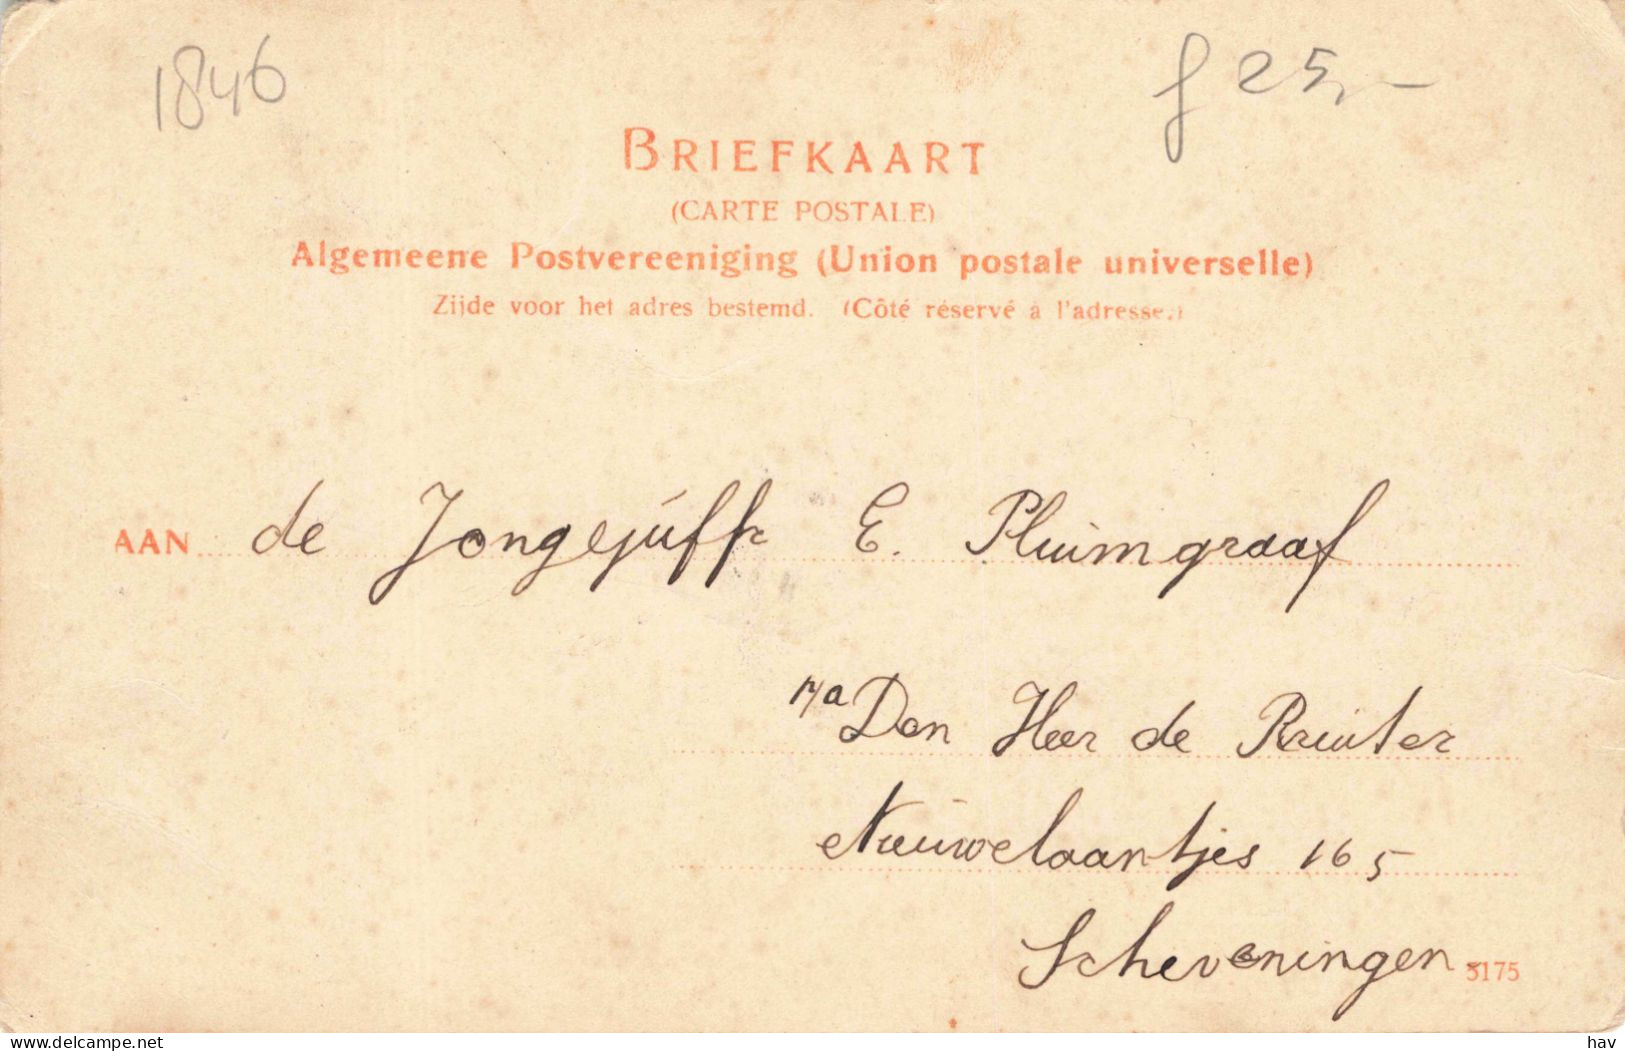 1846
f 25,-
BRIEFKAART
(CARTE POSTALE)
Algemeene Postvereeniging (Union postale universelle)
Zijde voor het adres bestemd. (Côté réservé à l'adresse.)
AAN de Jongejuffr E. Pluimgraaf
p/a Den Heer de Ruiter
Nieuwelaantjes 165
Scheveningen
5175
www.delcampe.net
hav